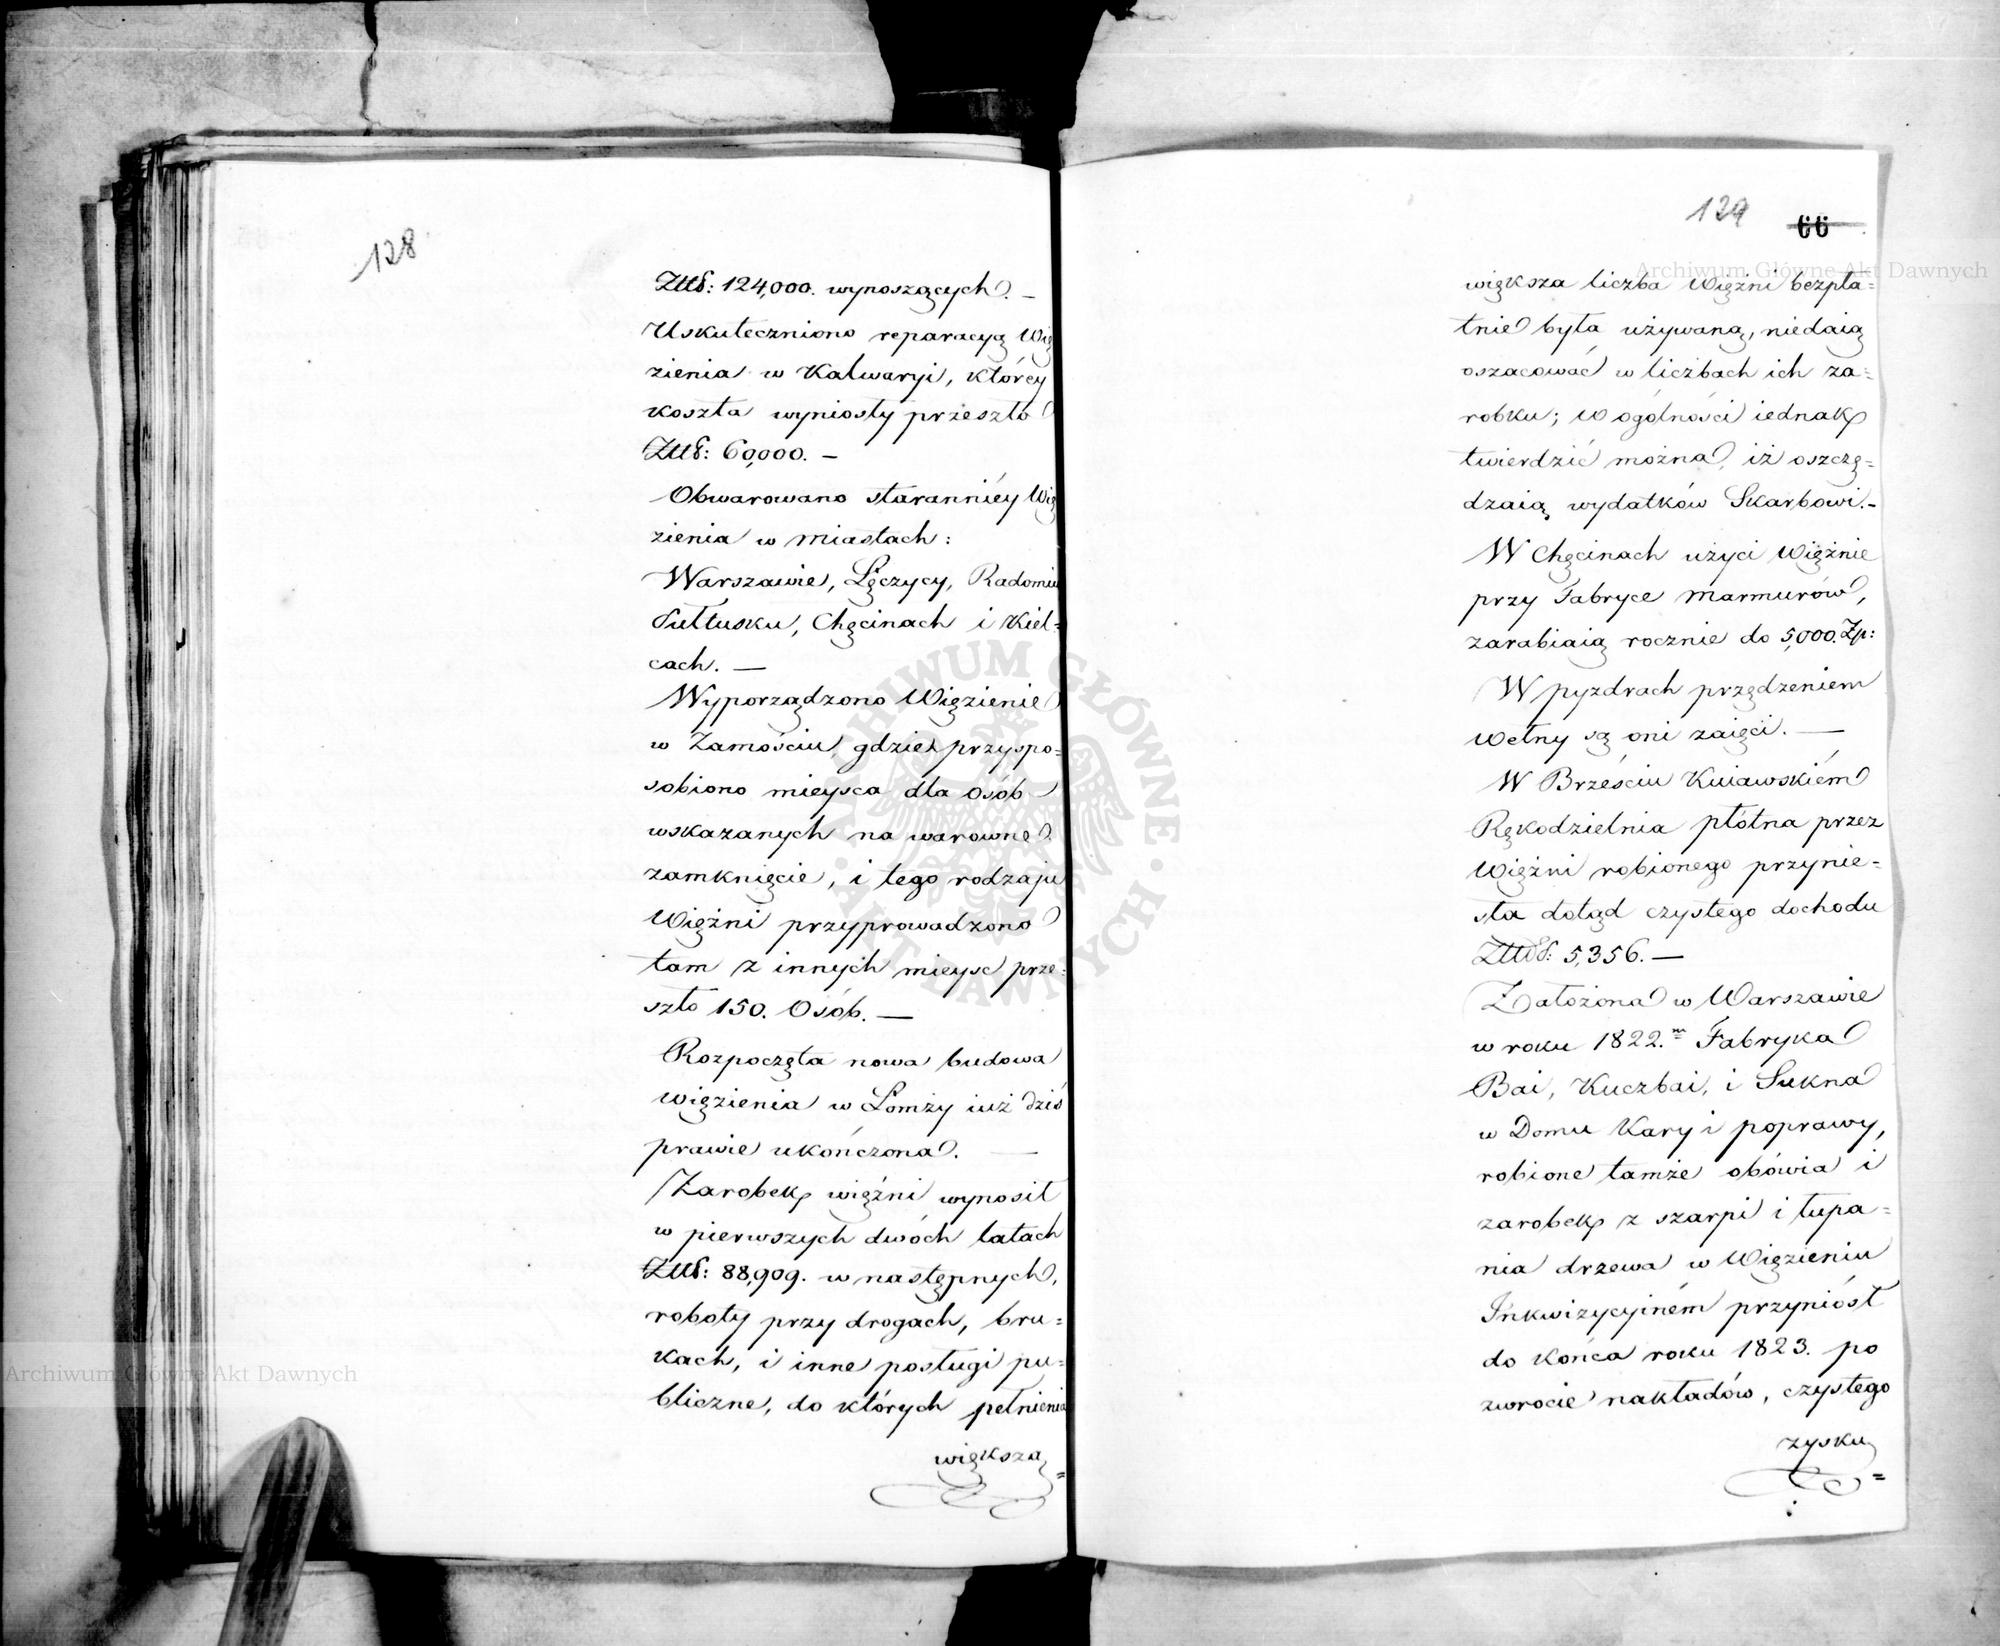 128
Złłpł: 124,000. wynoszących. —
Uskuteczniono reparacyą Wię
zienia w Kalwaryi, którey
koszta wyniosły przeszło
Złłpł: 60,000. —
Obwarowano staranniéy Wię
zienia w miastach:
Warszawie, Lęczycy, Radomiu
Pułtusku, Chęcinach i Kiel=
cach. —
Wyporządzono Więzienie
w Zamościu, gdzie przyspo=
sobiono mieysca dla osób
wskazanych na warowne
zamknięcie, i tego rodzaju
Więźni przyprowadzono
tam z innych mieysc prze=
szło 150. Osób. —
Rozpoczęta nowa budowa
więzienia w Łomży iuż dziś
prawie ukończona. —
Zarobek więźni wynosił
w pierwszych dwóch latach
Złłpł: 88,909. w następnych,
roboty przy drogach, bru=
kach, i inne posługi pu=
bliczne, do których pełnienia
większa=
129 66
większa liczba Więźni bezpła=
tnie była używaną, niedaią
oszacować w liczbach ich za=
robku; w ogólności iednak
twierdzić można, iż oszczę=
dzaią wydatków Skarbowi. —
W Chęcinach użyci Więźnie
przy Fabryce Marmurów,
zarabiaią rocznie do 5,000. Zp:
W pyzdrach przędzeniem
wełny są oni zaięci. —
W Brześciu Kuiawskiém
Rękodzielnia płótna przez
Więźni robionego przynie=
sła dotąd czystego dochodu
Złłpł: 5,356. —
Założona w Warszawie
w roku 1822.m Fabryka
Bai, Kuczbai, i Sukna
w Domu Kary i poprawy,
robione tamże obówia i
zarobek z szarpi i łupa=
nia drzewa w Więzieniu
Inkwizycyiném przyniósł
do końca roku 1823. po
zwrocie nakładów, czystego
zysku=
Archiwum Główne Akt Dawnych
Archiwum Główne Akt Dawnych
ARCHIWUM GŁÓWNE · AKT DAWNYCH ·